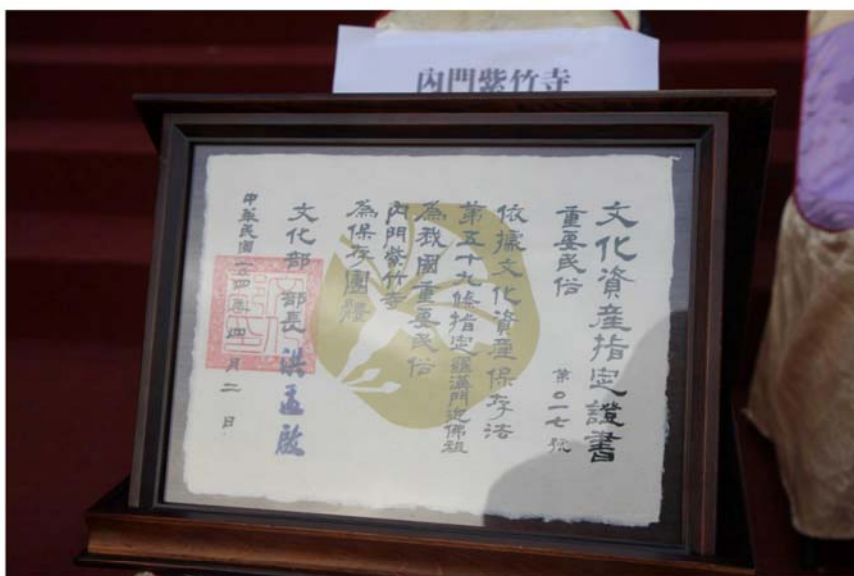 內門紫竹寺
文化資產指定證書
重要民俗
第0一七號
依據文化資產保存法
第五十九條指定羅漢門迎佛祖
為我國重要民俗
內門紫竹寺
為保存團體
文化部 部長 洪孟啟
中華民國一0四年四月二日